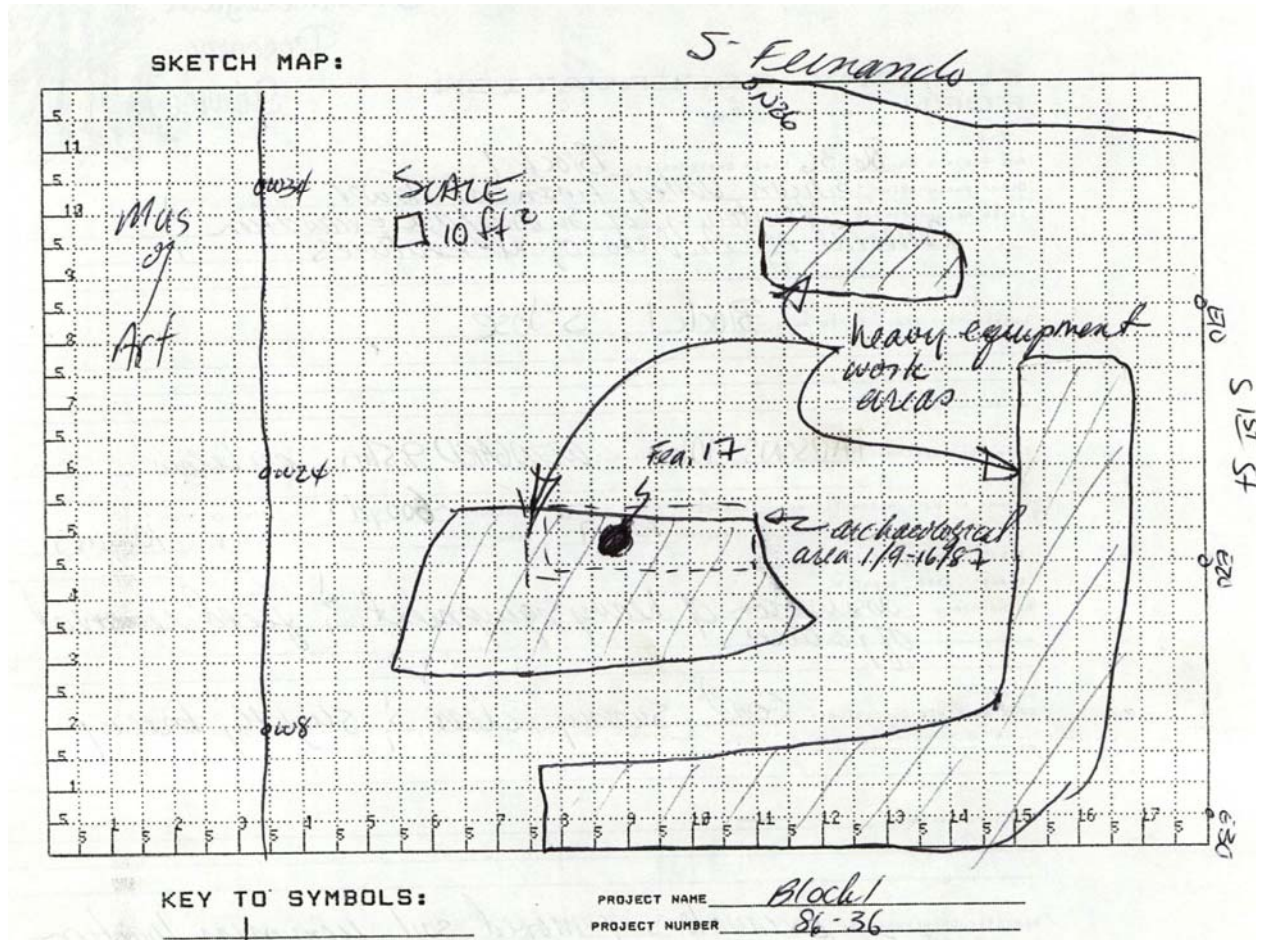 SKETCH MAP:
S- Fernando
N26
W34
SCALE
10 ft²
Mus
of
Art
E10
heavy equipment
work
areas
S 1st St
Fea. 17
W24
archaeological
area 1/9-16/87
E20
W8
E30
5
11
5
10
5
9
5
8
5
7
5
6
5
5
5
4
5
3
5
2
5
1
5
5 1 5 2 5 3 5 4 5 5 5 6 5 7 5 8 5 9 5 10 5 11 5 12 5 13 5 14 5 15 5 16 5 17 5
KEY TO SYMBOLS:
PROJECT NAME Block 1
PROJECT NUMBER 86-36